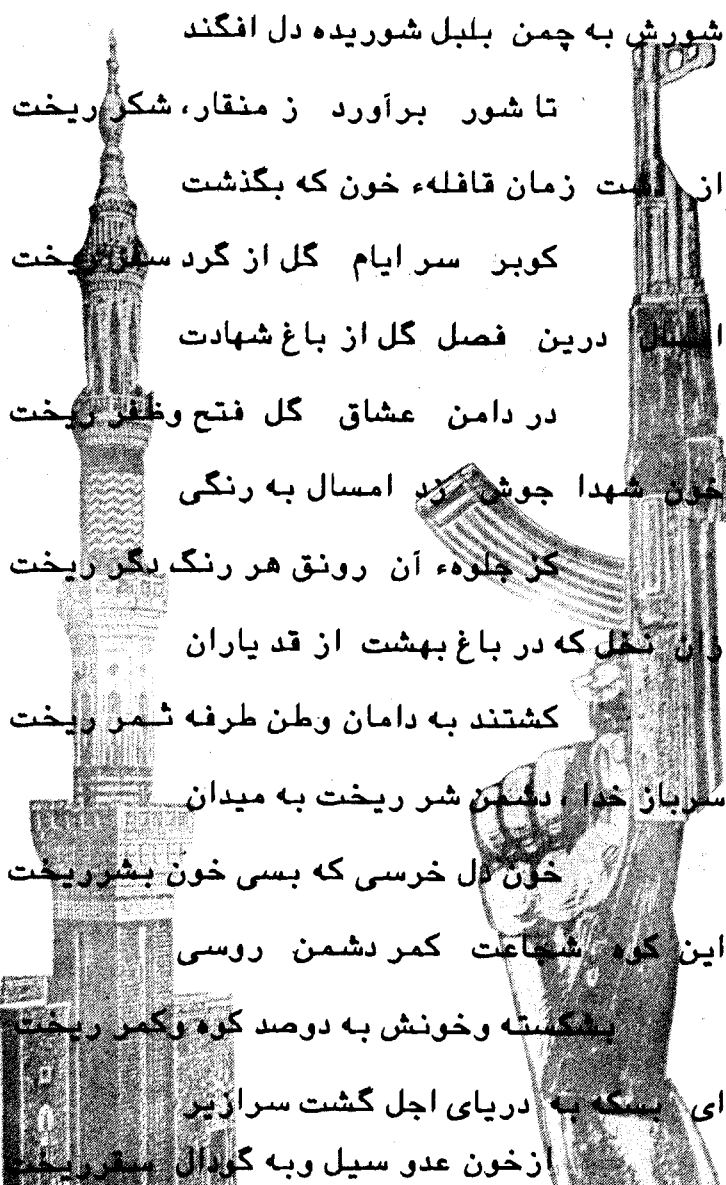 شورش به چمن بلبل شوریده دل افگند
تا شور برآورد ز منقار، شکر ریخت
از دشت زمان قافلهء خون که بگذشت
کوبر سر ایام گل از گرد سفر ریخت
امسال درین فصل گل از باغ شهادت
در دامن عشاق گل فتح وظفر ریخت
خون شهدا جوش زد امسال به رنگی
کز جلوهء آن رونق هر رنگ دگر ریخت
زان نخل که در باغ بهشت از قد یاران
کشتند به دامان وطن طرفه ثمر ریخت
سرباز خدا ، دشمن شر ریخت به میدان
خون دل خرسی که بسی خون بشرریخت
این کوه شجاعت کمر دشمن روسی
بشکسته وخونش به دوصد کوه وکمر ریخت
ای بسکه به دریای اجل گشت سرازیر
ازخون عدو سیل وبه گودال سقرریخت